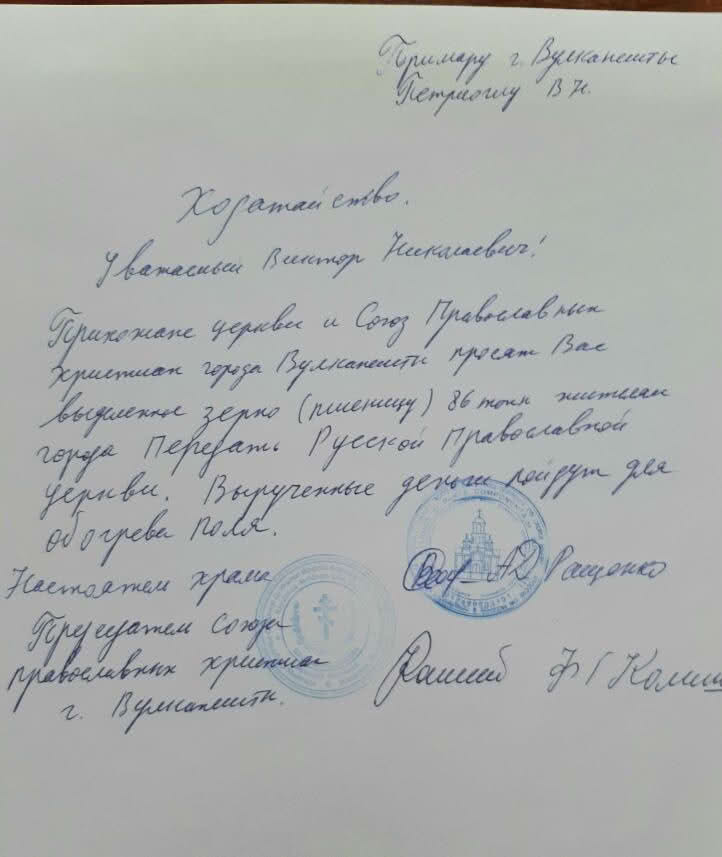 Примару г. Вулканешты
Петриоглу В Н.
Ходатайство.
Уважаемый Виктор Николаевич!
Прихожане церкви и Союз Православных
христиан города Вулканешты просят Вас
выделенное зерно (пшеницу) 86 тонн жителям
города Передать Русской Православной
церкви. Вырученные деньги пойдут для
обогрева Поля.
Настоятель храма А Д Ращенко
Председатель Союза
православных христиан Ф Г
г. Вулканешты.